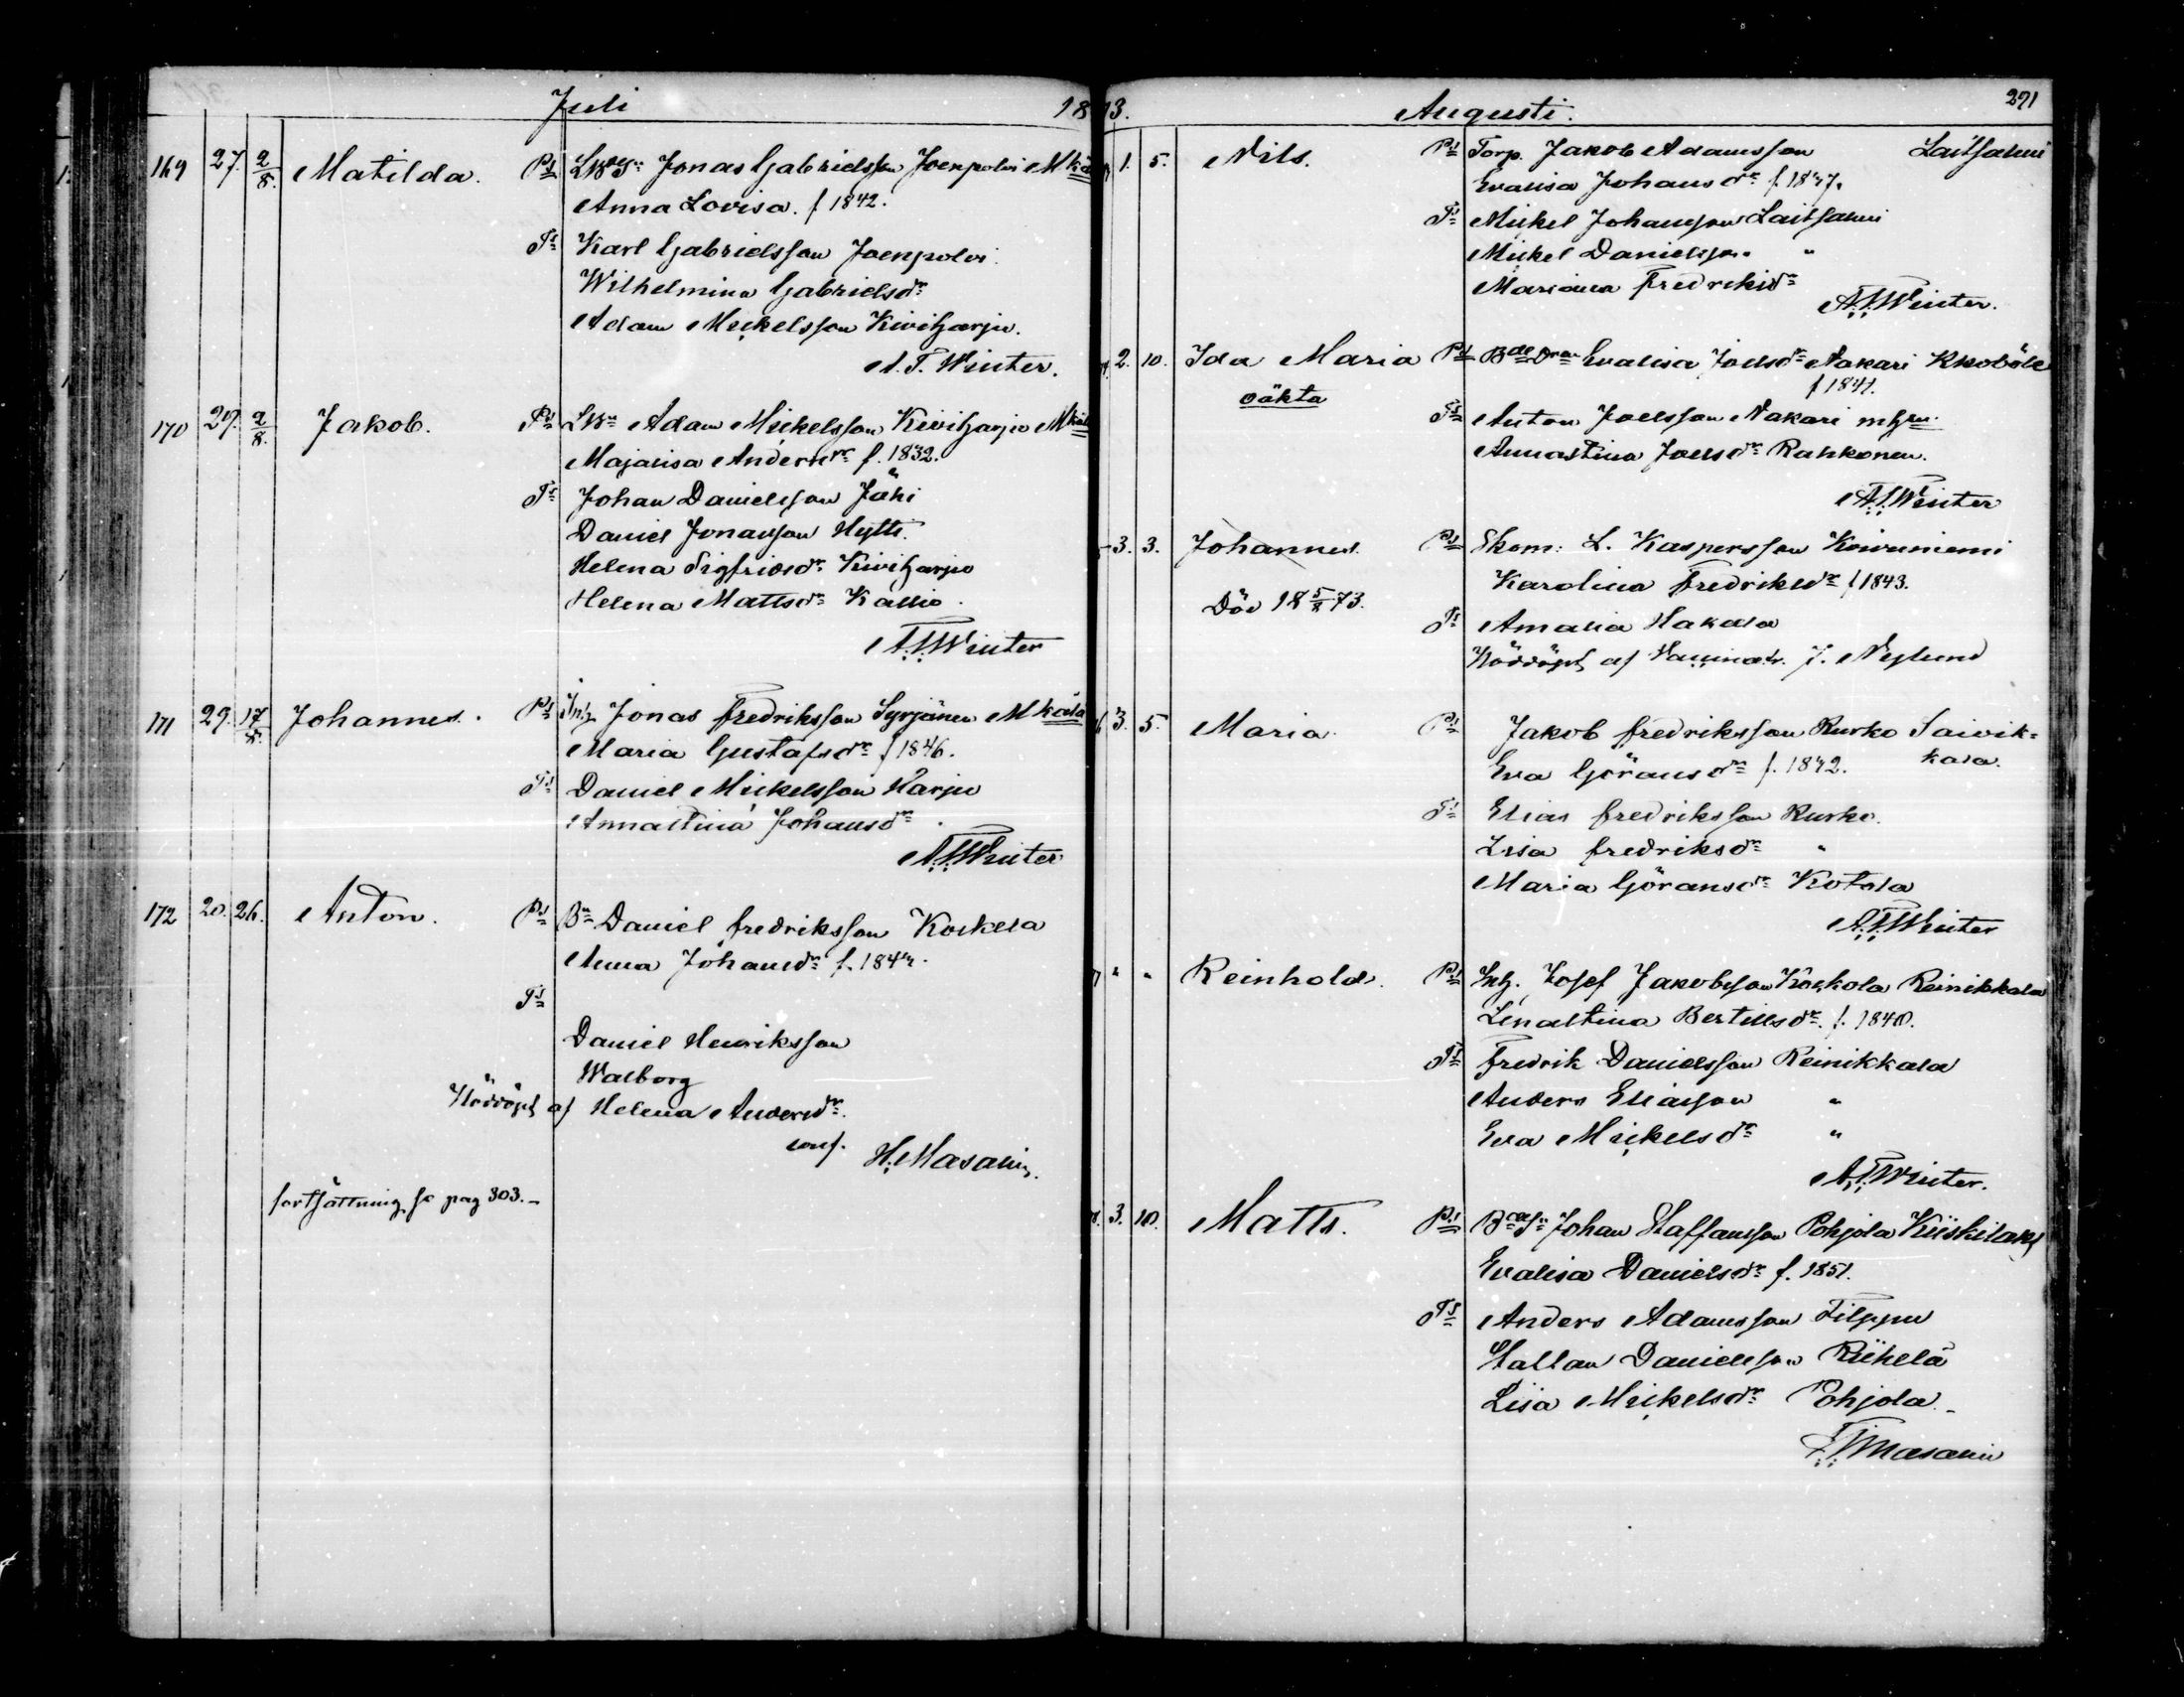 Juli 1873. Augusti. 291
169 27. 2/8. Matilda. Ps Jonas Gabrielsson Joenpolvi
Anna Lovisa. f 1842.
Ts Karl Gabrielsson Joenpolvi.
Wilhelmina Gabrielsdr
Adam Mickelsson Kiviharju.
A. F. Winter.
170 29. 2/8. Jakob. Ps Adam Mickelsson Kiviharju
Majalisa Andersdr f. 1832.
Ts Johan Danielsson Jähi
Daniel Jonasson Hytti.
Helena Sigfridsdr Kiviharju
Helena Mattsdr Kallio.
A.F. Winter
171 29. 17/8. Johannes. Ps Inh. Jonas Fredriksson Syrjänen Mkälä
Maria Gustafsdr f 1846.
Ts Daniel Mickelsson Harju
Annastina Johansdr.
A.F. Winter
172 20. 26. Anton. Ps Bn Daniel Fredriksson Koskela
Anna Johansdr f.
Ts
Daniel Henriksson
Walborg
Nöddöpt af Helena Andersdr.
conf. H. Masalin.
fortsättning se pag 303.-
1. 5. Nils. Ps Torp. Jakob Adamsson Laitsalmi
Evalisa Johansdr f. 1847.
Ts Mickel Johansson Laitsalmi
Mickel Danielsson "
Mariana Fredriksdr
A.F. Winter.
2. 10. Ida Maria Ps Evalisa Joelsdr Nakari
oäkta f 1841.
Ts Anton Joelsson Nakari
Annastina Joelsdr Rahkonen.
A.F. Winter
3. 3. Johannes. Ps Skom: L. Kaspersson Koivuniemi
Karolina Fredriksdr f 1843.
Död 18 5/8 73.
Ts Amalia Hakala
Nöddöpt af J. Nylund
3. 5. Maria. Ps Jakob Fredriksson Kurko Saivik=
Eva Göransdr f. 1842. kala.
Ts Elias Fredriksson Kurko.
Lisa Fredriksdr "
Maria Göransdr Kotala
A.F. Winter
" " Reinhold. Ps Inh. Josef Jakobsson Koskola Reinikkala
Lenastina Bertilsdr. f. 1840.
Ts Fredrik Danielsson Reinikkala
Anders Eliasson "
Eva Mickelsdr "
A.F. Winter.
3. 10. Matts. Ps Johan Staffansson Pohjola Kiiskilaks
Evalisa Danielsdr f. 1851.
Ts Anders Adamsson Filppu
Staffan Danielsson Riihelä
Lisa Mickelsdr Pohjola.-
Masalin